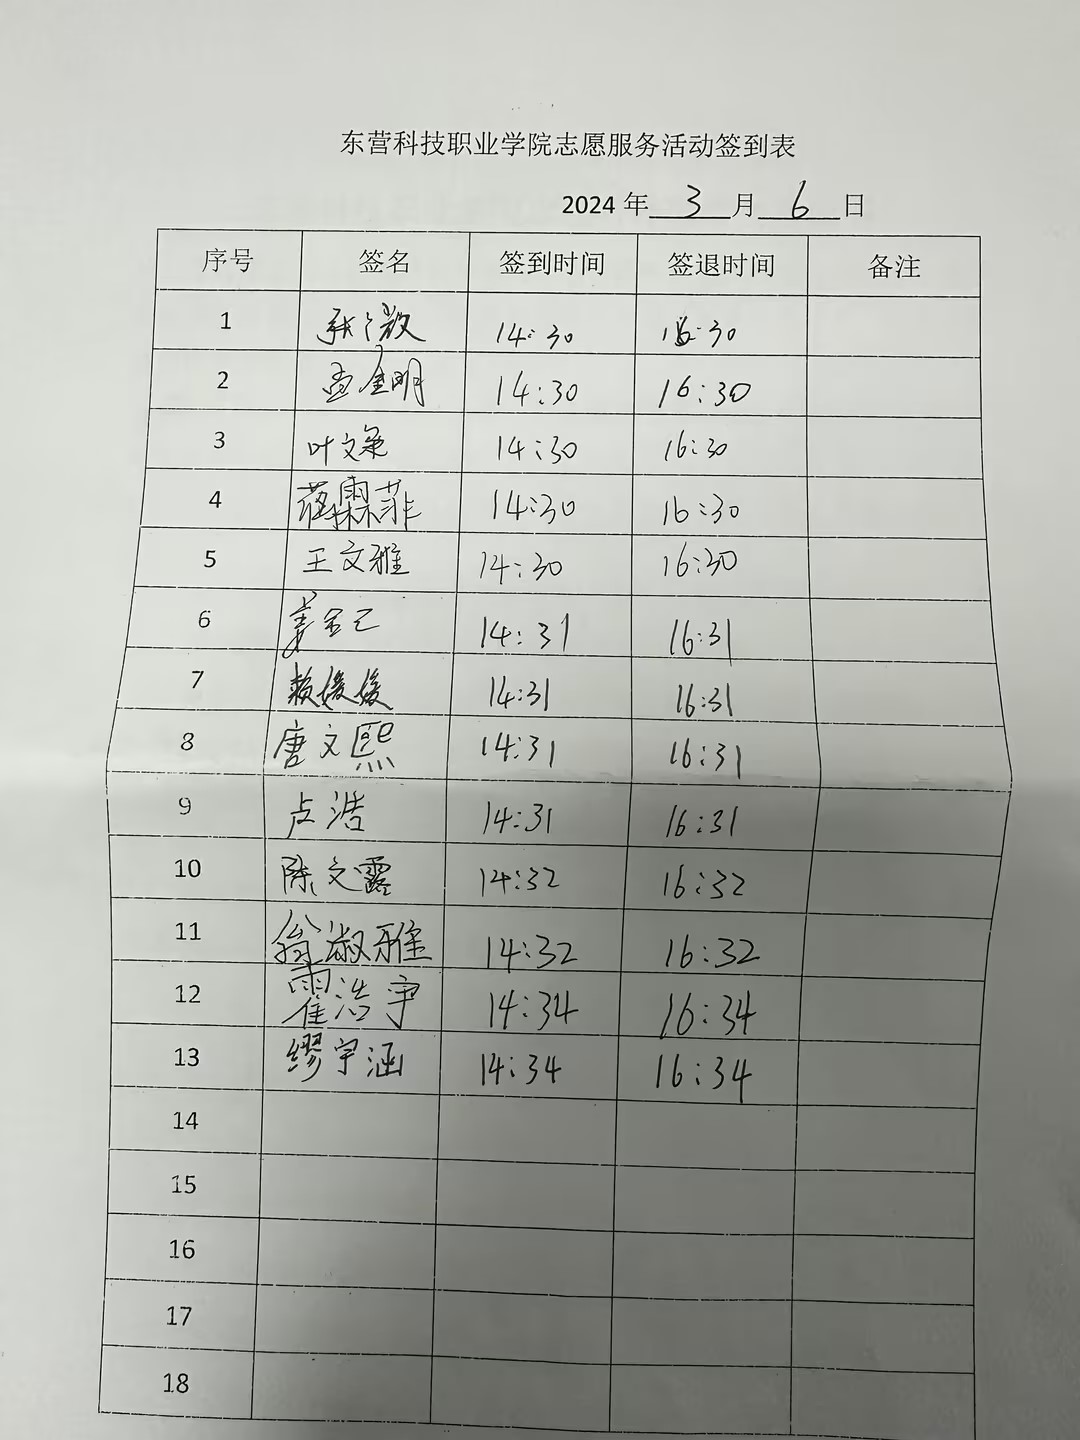 东营科技职业学院志愿服务活动签到表
2024 年 3 月 6 日
序号 签名 签到时间 签退时间 备注
1 张 14:30 16:30
2 孟金明 14:30 16:30
3 叶文 14:30 16:30
4 霖菲 14:30 16:30
5 王文雅 14:30 16:30
6 姜金 14:31 16:31
7 赖媛媛 14:31 16:31
8 唐文熙 14:31 16:31
9 卢浩 14:31 16:31
10 陈文露 14:32 16:32
11 翁淑雅 14:32 16:32
12 霍浩宇 14:34 16:34
13 缪宇涵 14:34 16:34
14
15
16
17
18